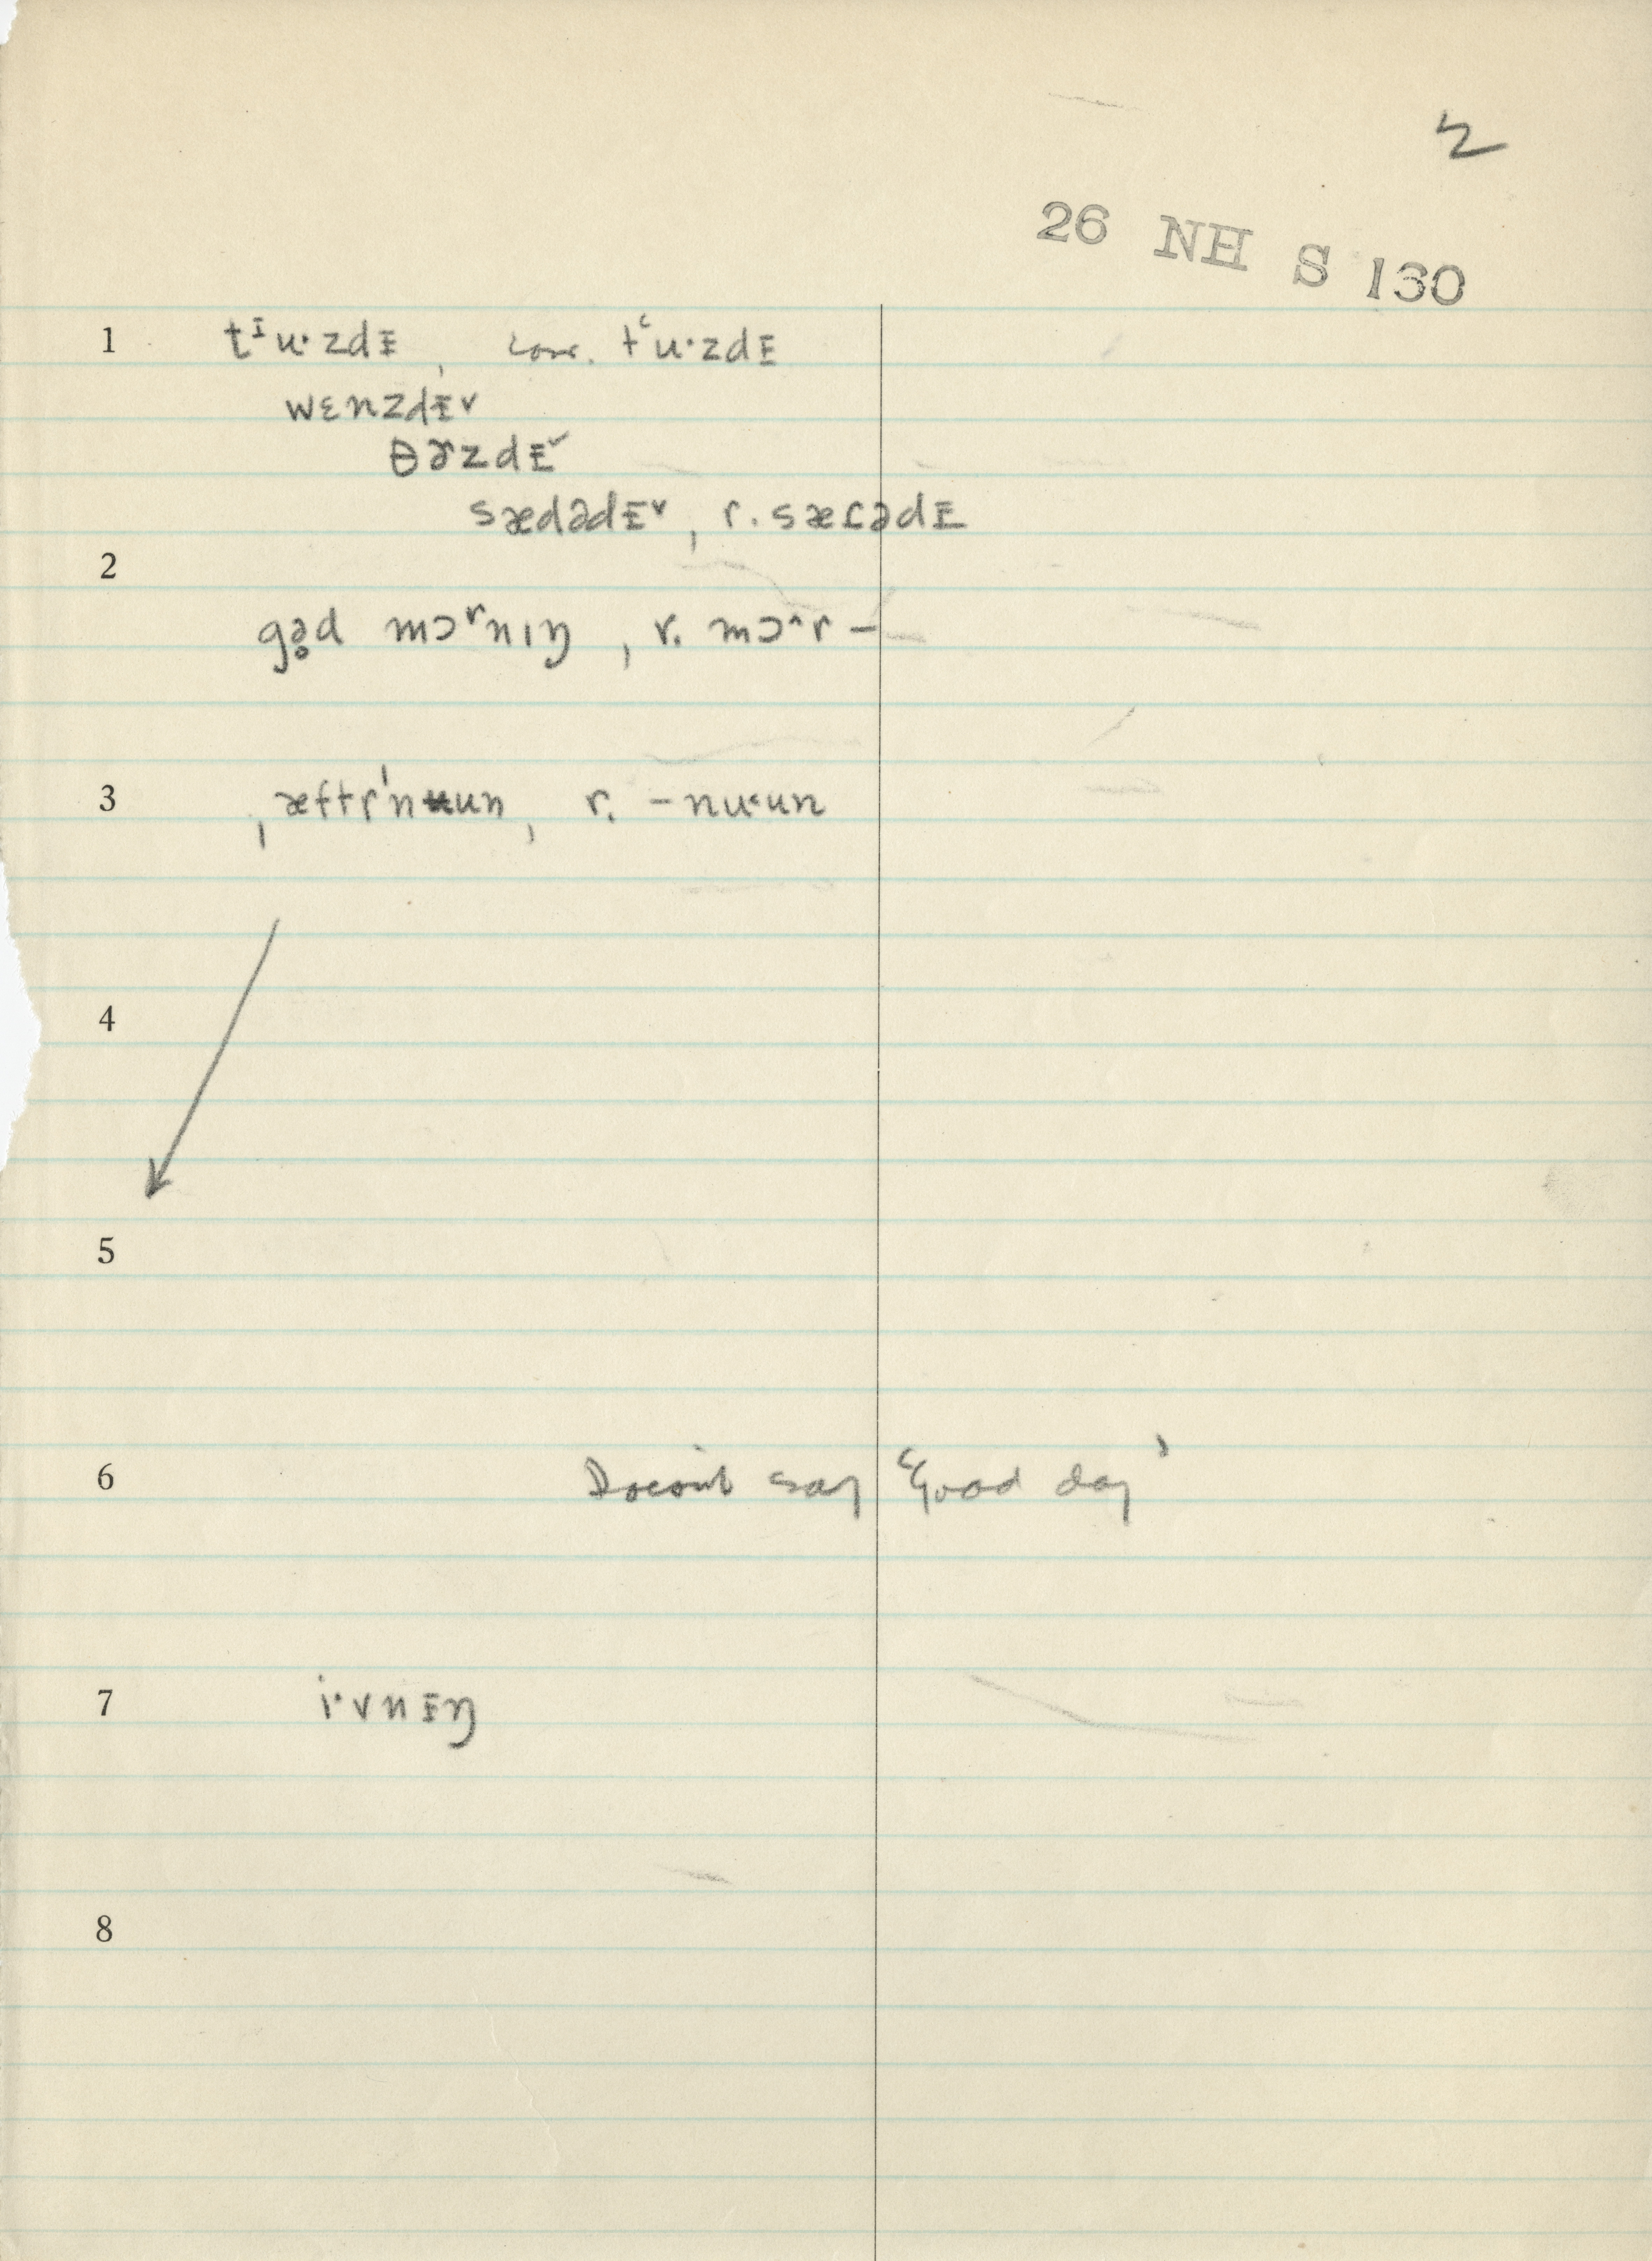 2
26 NH S 130
1 tᶦu·zdᵻ, conv. tʿu·zdᵻ
wɛnzdᵻ˅
θɚzdᵻ˅
sædədᵻ˅, r. sæɾədᵻ
2
gə̥d mɔʳnıŋ, r. mɔ^r –
3 ˌæftrˈnʉun, r. – nu˂un
4
5
6 Doesn't say 'Good day'
7 i·vnᵻŋ
8